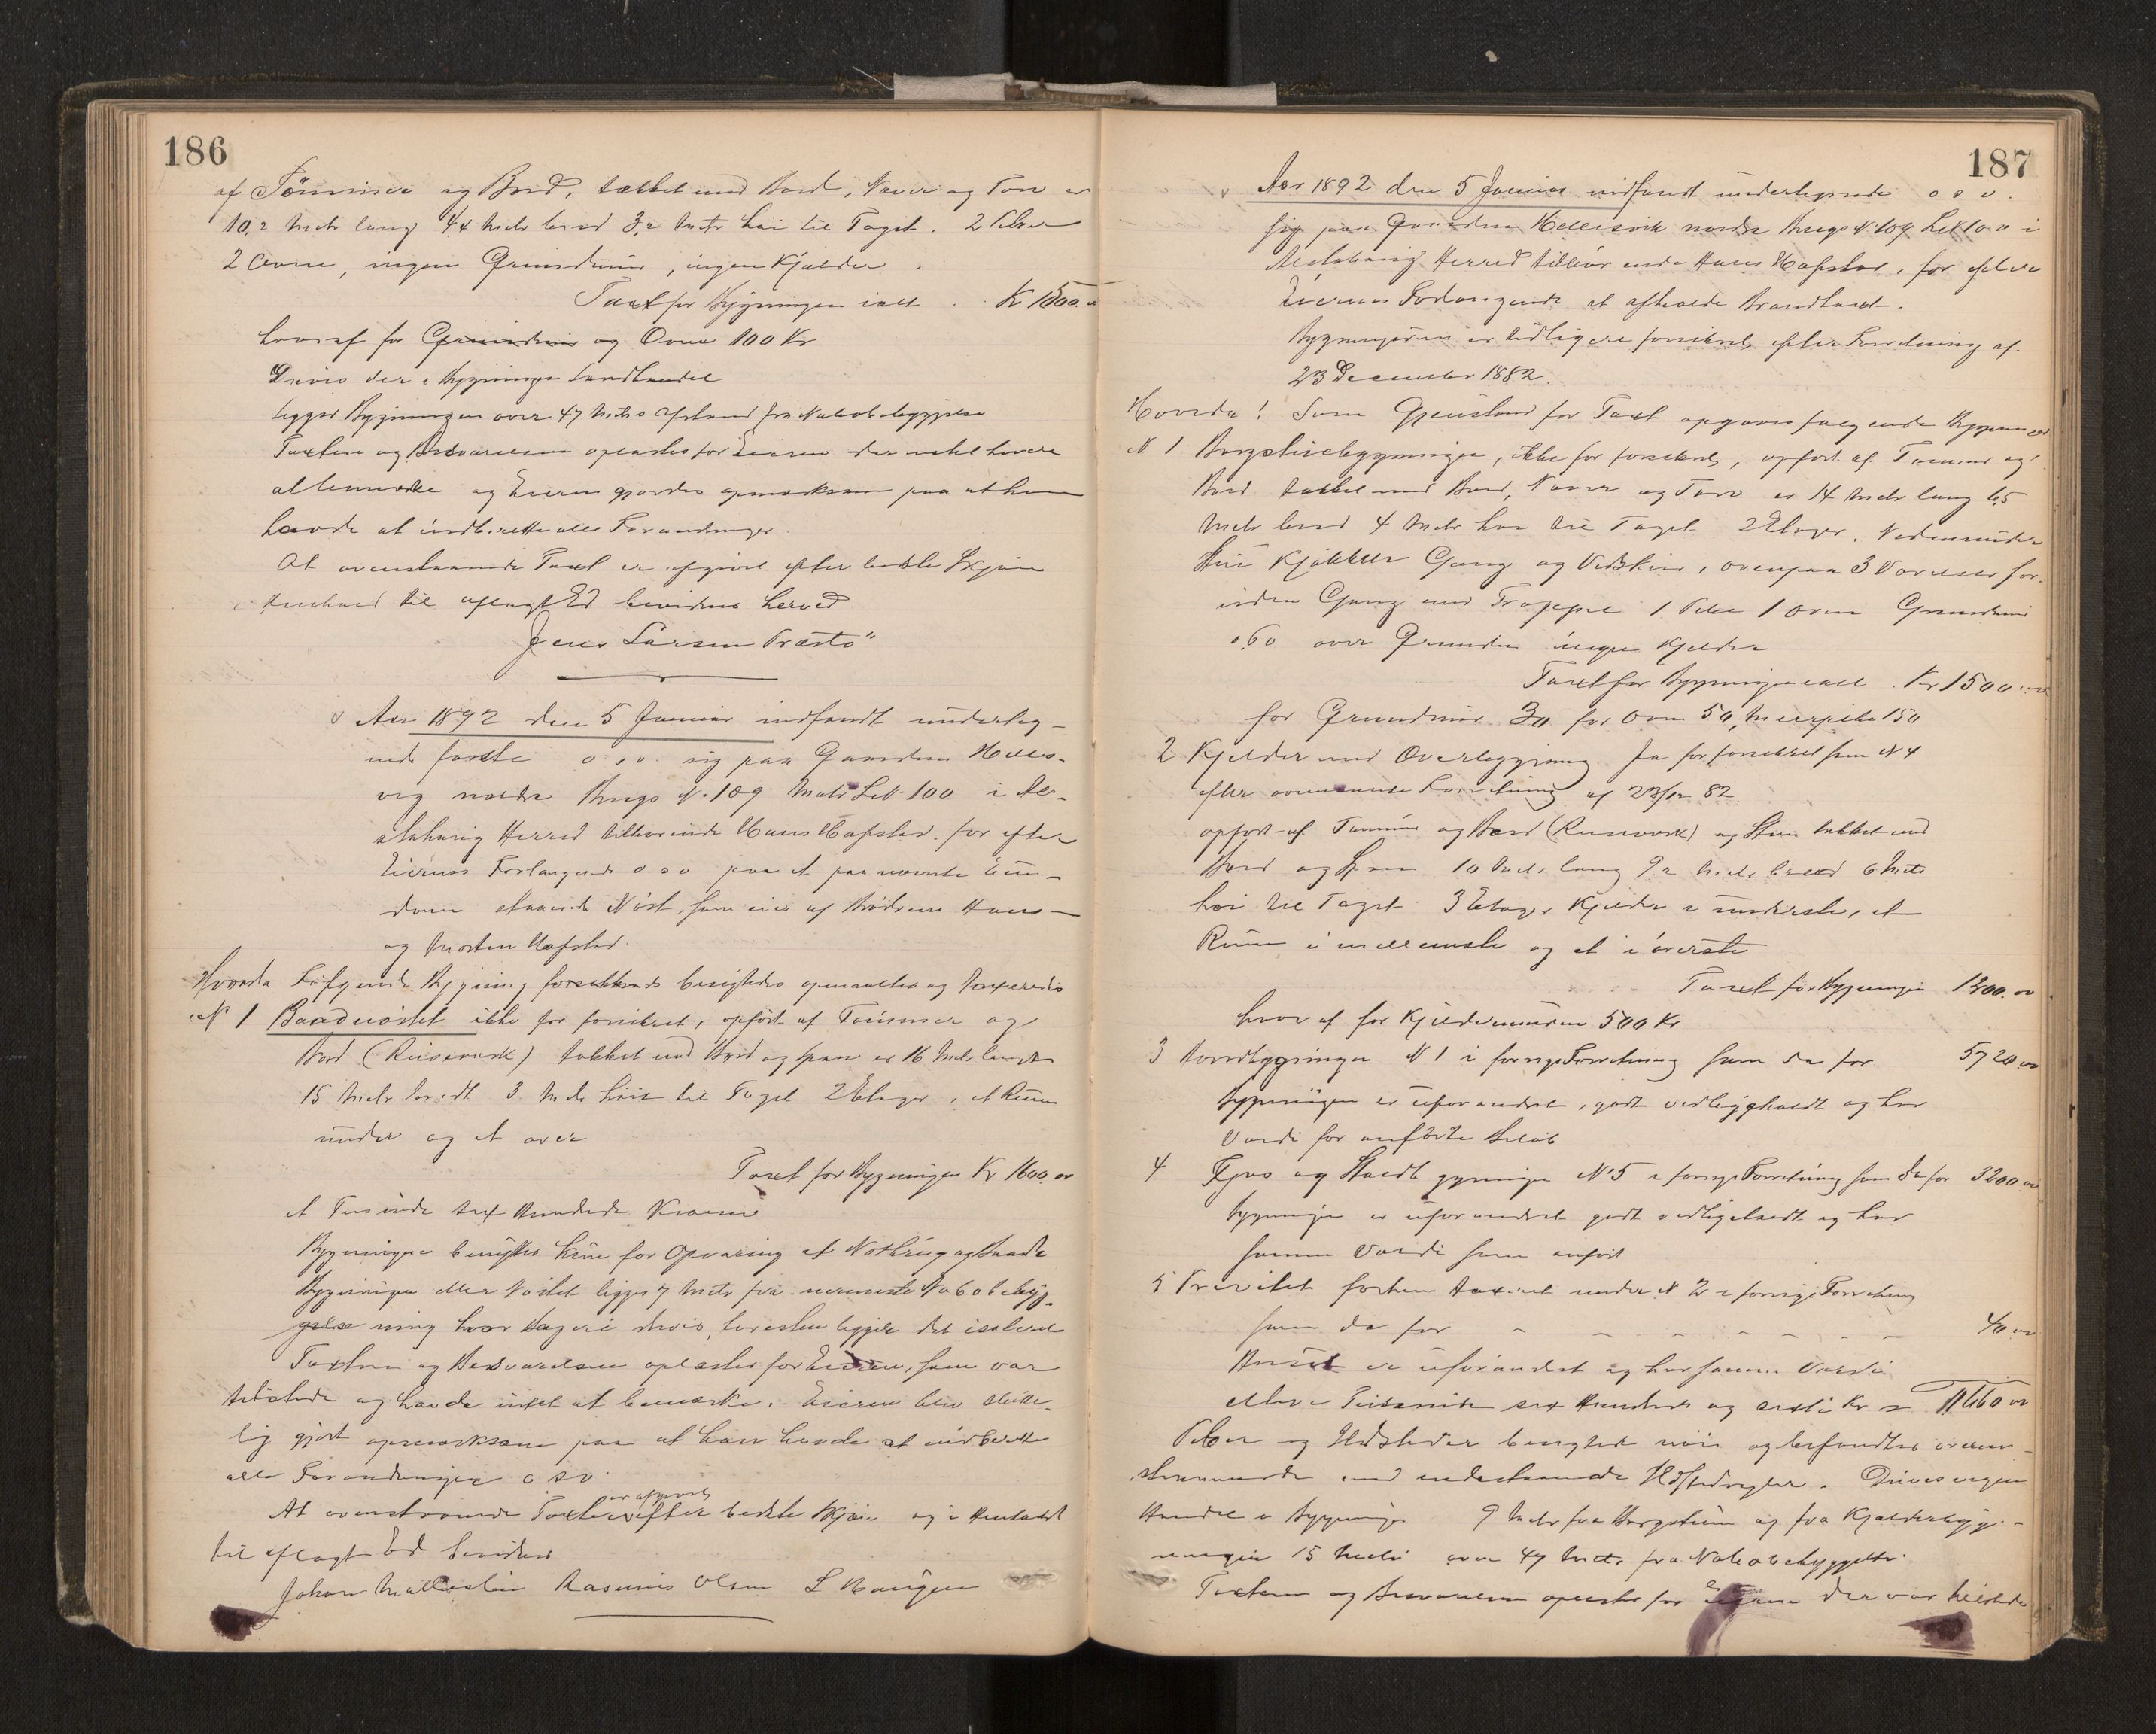 186
af Tömmer og Bord, tækket med Bord, Næver og Torv er
10,2 Metr lang 4,4 Metr bred 3,2 Metr høi til Taget. 2 Piber
2 Ovne, ingen Grundmur, ingen Kjælder.
Taxt for Bygningen ialt . Kr 1500.00
hvoraf for Grundmur og Ovne 100 Kr
Drives der i Bygningen Landhandel
ligger Bygningen over 47 Metrs Afstand fra Nabobebyggelse
Taxten og Besvarelsen oplæstes for Eieren der intet havde
at bemærke og Eieren gjordes opmærksom paa at han
havde at indberette alle Forandringer
At ovenstaaende Taxt er afgivet efter bedste Skjøn
i Henhold til aflagt Ed bevidnes herved
Jens Larsen Præstö
Aar 1892 den 5 Januar indfandt underteg-
nede o s v. sig paa Gaarden Helles-
vig nordre Brugs N. 109 Matr Lib 100 i Al-
stahaug Herred tilhørende Hans Hafstad for efter
Eierens Forlangende o s v paa et paa nævnte Eien-
dom staaende Nöst, som eies af Brødrene Hans
og Morten Hafstad.
Hvorda Følgende Bygning besigtedes opmaaltes og taxeredes
N 1 Baadnöstet ikke før forsikret, opfört af Tömmer og
Bord (Reisværk) tækket med Bord og Spaan er 16 Metr langt
15 Metr bredt 3 Metr høit til Taget 2 Etager, et Rum
under og et over
Taxt for Bygningen Kr 1600.00
et Tusinde sex Hundrede Kroner
Bygningen benyttes kun for Opvaring af Notbrug og Baade
Bygningen eller Nöstet ligger 7 Metr fra nærmeste Nabobebyg-
ning hvor Bageri drives, forresten ligger det isoleret
Taxten og Besvarelsen oplæstes for Eieren, som var
tilstede og havde intet at bemærke. Eieren blev skrifte-
lig gjort opmærksom paa at han havde at indberette
alle Forandringer o s v.
At ovenstaaende Taxter er afgivet efter bedste Skjøn og i Henhold
til aflagt Ed bevidnes
Johan Rasmus Olsen L Haugen
187
Aar 1892 den 5 Januar indfandt undertegnede o s v.
sig paa Gaarden Hellesvik nordre Brugs N 109 Lib 100 i
Alstahaug Herred tilhørende Hans Hafstad, for efter
Eierens Forlangende at afholde Brandtaxt.
Bygningerne er tidligere forsikret efter Forretning af
23 December 1882.
Hvorda! Som Gjenstand for Taxt opgaves følgende Bygninger
N 1 Borgstuebygningen, ikke før forsikret, opført af Tømmer og
Bord tækket med Bord, Næver og Torv er 14 Metr lang 6,5
Metr bred 4 Metr høi til Taget 2 Etager. Nedenunder
Stue Kjøkken Gang og Vedskjul, ovenpaa 3 Værelser for-
uden Gang med Trappe 1 Pibe 1 Ovn Grundmur
0,60 over Grunden ingen Kjelder
Taxt for Bygningen ialt . Kr 1500.00
for Grundmur 30 for Ovn 50, Murpibe 150
2 Kjelder med Overbygning. Ja før forsikret som N 4
efter ovennævnte Forretning af 23/12 82.
opført af Tømmer og Bord (Reisværk) og Sten tækket med
Bord og Spaan 10 Metr lang 9,2 Metr bred 6 Metr
høi til Taget 3 Etager Kjelder i underste, et
Rum i mellemste og et i øverste
Taxt for Bygningen 1200.00
hvoraf for Kjeldermuren 500 Kr
3 Hovedbygningen N 1 i forrige Forretning som da for 5720.00
Bygningen er uforandret, godt vedligeholdt og har
Værdi for anførte Beløb
4 Fjøs og Staldbygningen N 5 i forrige Forretning som da for 3200.00
Bygningen er uforandret godt vedligeholdt og har
samme Værdi som anført
5 Privetet forhen taxeret under N 2 i forrige Forretning
som da for - - - - - - - 40.00
Huset er uforandret og har samme Værdi
elleve Tusinde sex Hundrede og sexti Kr = 11660.00
Piber og Ildsteder besigtedes nøie og befandtes overens-
stemmende med Drives ingen
Handel i Bygningen 9 Metr fra Borgstuen og fra Kjelderbyg-
ningen 15 Metr over 47 Metr fra Nabobebyggelse.
Taxten og Besvarelsen oplæstes for Eieren der var tilstede